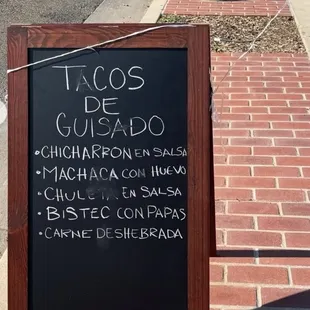 TACOS
DE
GUISADO
• CHICHARRON EN SALSA
• MACHACA CON HUEVO
• CHULETA EN SALSA
• BISTEC CON PAPAS
• CARNE DESHEBRADA